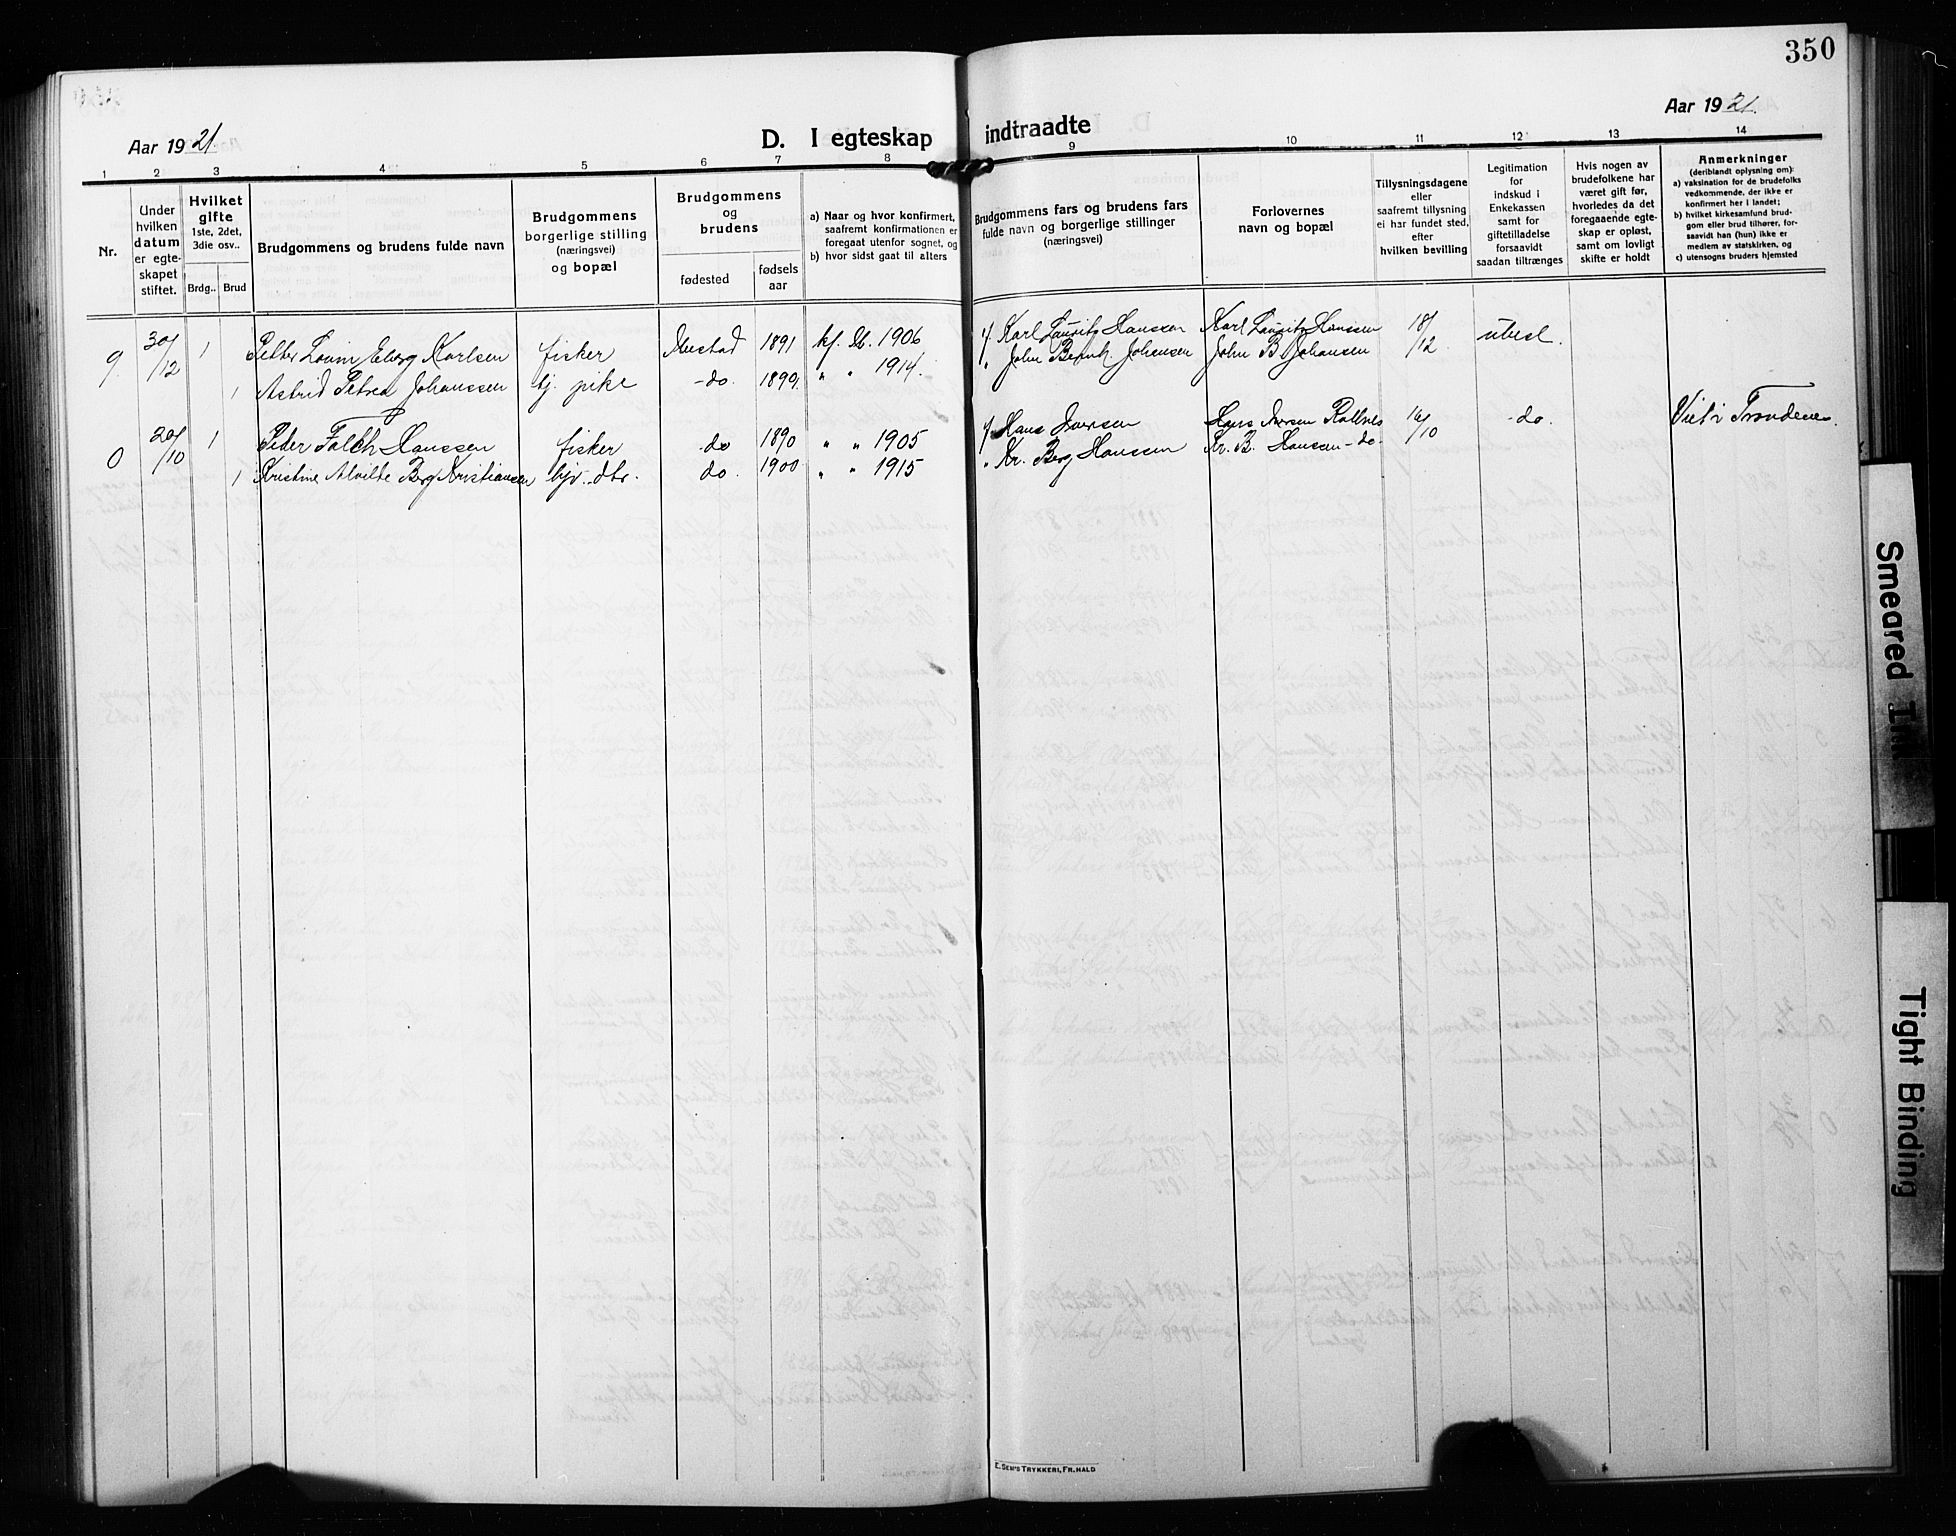 350
Aar 1921.
Aar 1921.
D. I egteskap indtraadte
1 2 3 4 5 6 7 8 9 10 11 12 13 14
Nr.
Under hvilken datum er egte-skapet stiftet.
Hvilket gifte 1ste, 2det, 3die osv..
Brdg.. Brud
Brudgommens og brudens fulde navn
Brudgommens borgerlige stilling (næringsvei) og bopæl
Brudgommens og brudens
fødested
fødsels aar
a) Naar og hvor konfirmert, saafremt konfirmationen er foregaat utenfor sognet, og
b) hvor sidst gaat til alters
Brudgommens fars og brudens fars fulde navn og borgerlige stillinger (næringsvei)
Forlovernes navn og bopæl
Tillysningsdagene eller saafremt tillysning ei har fundet sted, efter hvilken bevilling
Legitimation for indskud i Enkekassen samt for giftetilladelse forsaavidt saadan tiltrænges
Hvis nogen av brudefolkene har været gift før, hvorledes da det foregaaende egte-skap er opløst, samt om lovligt skifte er holdt
Anmerkninger
(deriblandt oplysning om):
a) vaksination for de brudefolks vedkommende, der ikke er konfirmert her i landet;
b) hvilket kirkesamfund brud-gom eller brud tilhører, for-saavidt han (hun) ikke er medlem av statskirken, og
c) utensogns bruders hjemsted
9 30/12 1 Petter Karlsen fisker 1891 1906 Karl Lauritz Hanssen Karl Lauritz Hanssen 18/12 ubesl.
1 Astrid Petrea Johanssen tj. pike -do. 1899. " " 1914. " John Bernh. Johansen John B. Johansen
0 20/10 1 Peder Falch Hanssen fisker do 1890 " " 1905 Hans Iversen Hans Iversen 16/10 -do. Viet i Trondenes.
1 Kristine Alvilde Berg Kristiansen do. 1900 " " 1915 " Kr. Berg Hanssen Kr. B. Hansen -do-
E. SEM'S TRYKKERI, FR.HALD
Smeared Ink
Tight Binding